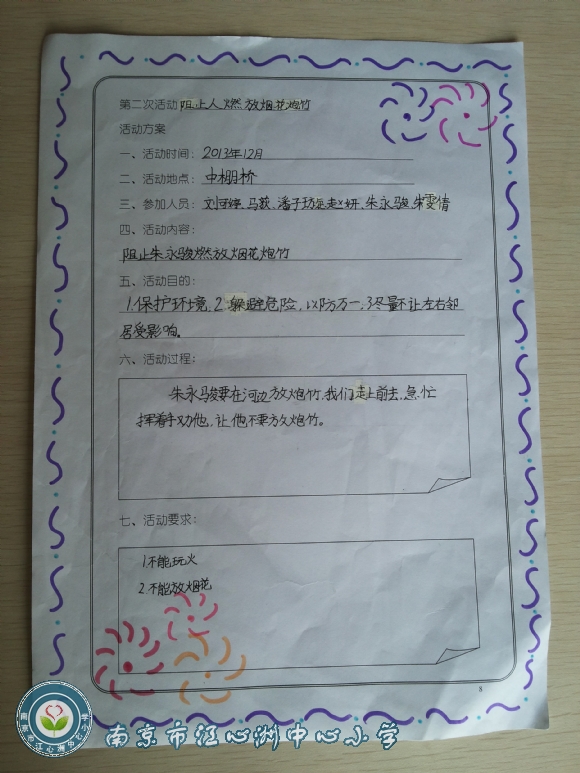 第二次活动 阻止人燃放烟花炮竹
活动方案
一、活动时间: 2013年12月
二、活动地点: 中棚桥
三、参加人员: 刘可婷、马薮、潘子玏、赵妍、朱永骏、朱雯倩
四、活动内容:
阻止朱永骏燃放烟花炮竹
五、活动目的:
1.保护环境, 2.躲避危险,以防万一,3尽量不让左右邻
居受影响。
六、活动过程:
朱永骏要在河边放炮竹,我们走上前去,急忙
挥着手劝他,让他不要放炮竹。
七、活动要求:
1.不能玩火
2.不能放烟花
8
南京市江心洲中心小学
南京市江心洲中心小学